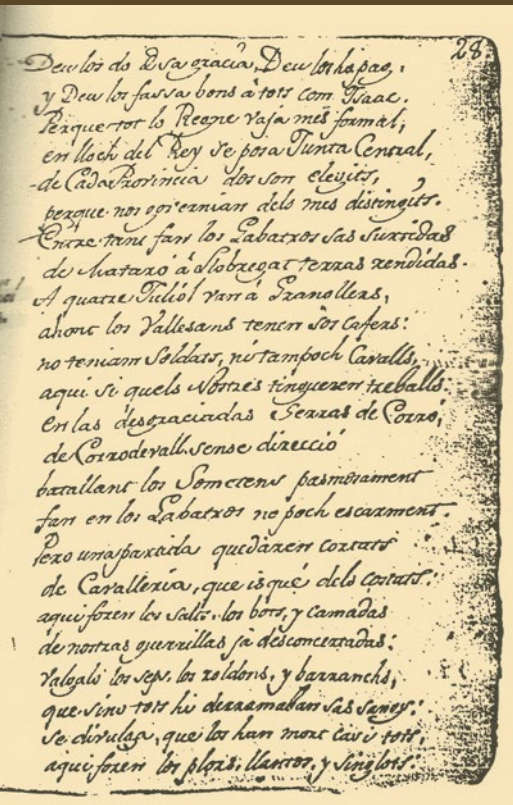 28
Deu los do Sa gracia, Deu los ha pao,
y Deu los fassa bons á tots com Isaac.
Perque tot lo Regne vaja més formal,
en lloch del Rey se posa Junta Central,
de Cada Provincia dos son elegits,
perque nos governian dels mes distingits.
Entre tant fan los Gabatxos sas surtidas
de Mataró á Llobregat terras rendidas.
A quatre Juliól van á Granollers,
ahont los Vallesans tenen sos cafers:
no teniam Soldats, ni tampoch Cavalls,
aqui si quels Nostres tingueren treballs.
en las desgraciadas Serras de Corró,
de Corrodevall, sense direcció
batallant los Sometens pasmosament
fan en los Gabatxos no poch escarment.
Pero una partida quedáren cortats
de Cavalleria, que isqué dels costats:
aqui foren los salts, los bots, y camadas
de nostras guerrillas ja desconcertadas:
Valgali los seps, los roldons, y barranchs,
que sino tots hi derramaban sas sangs:
se divulga, que los han mort casi tots,
aqui foren los plors, llantos, y singlots.